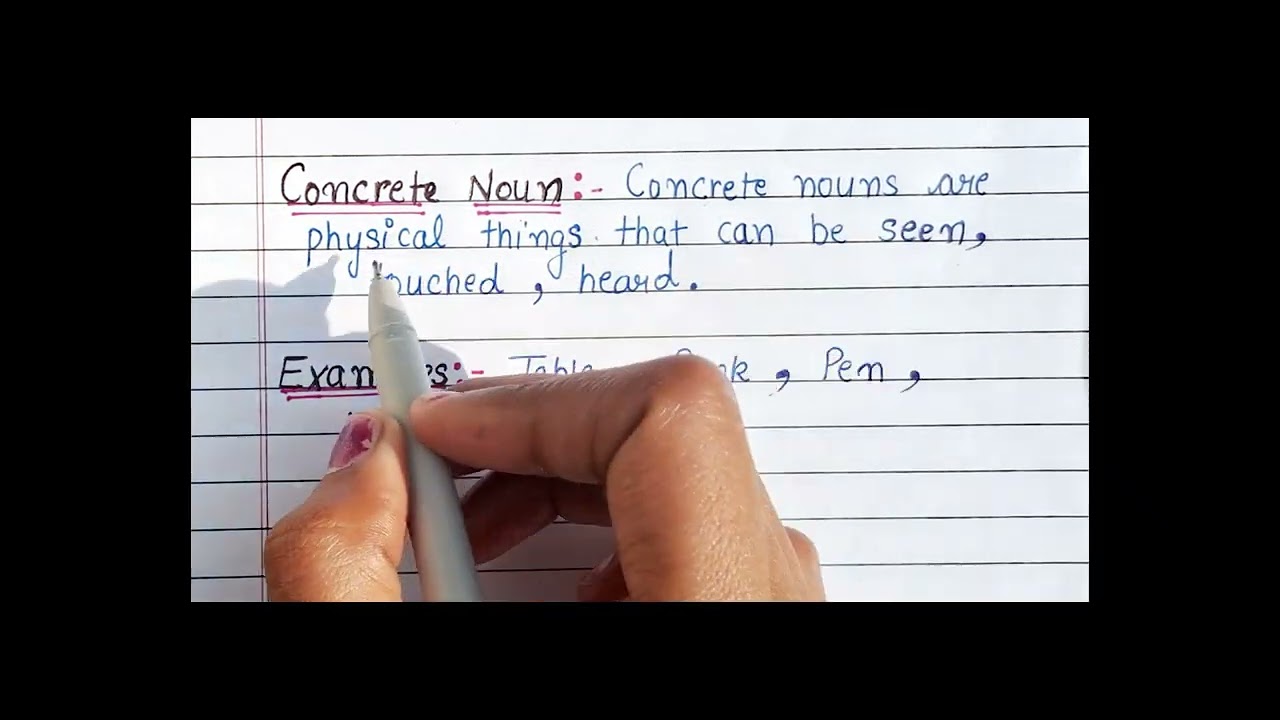 Concrete Noun:- Concrete nouns are
physical things that can be seen,
touched, heard.
Examples:- Table, , Pen,